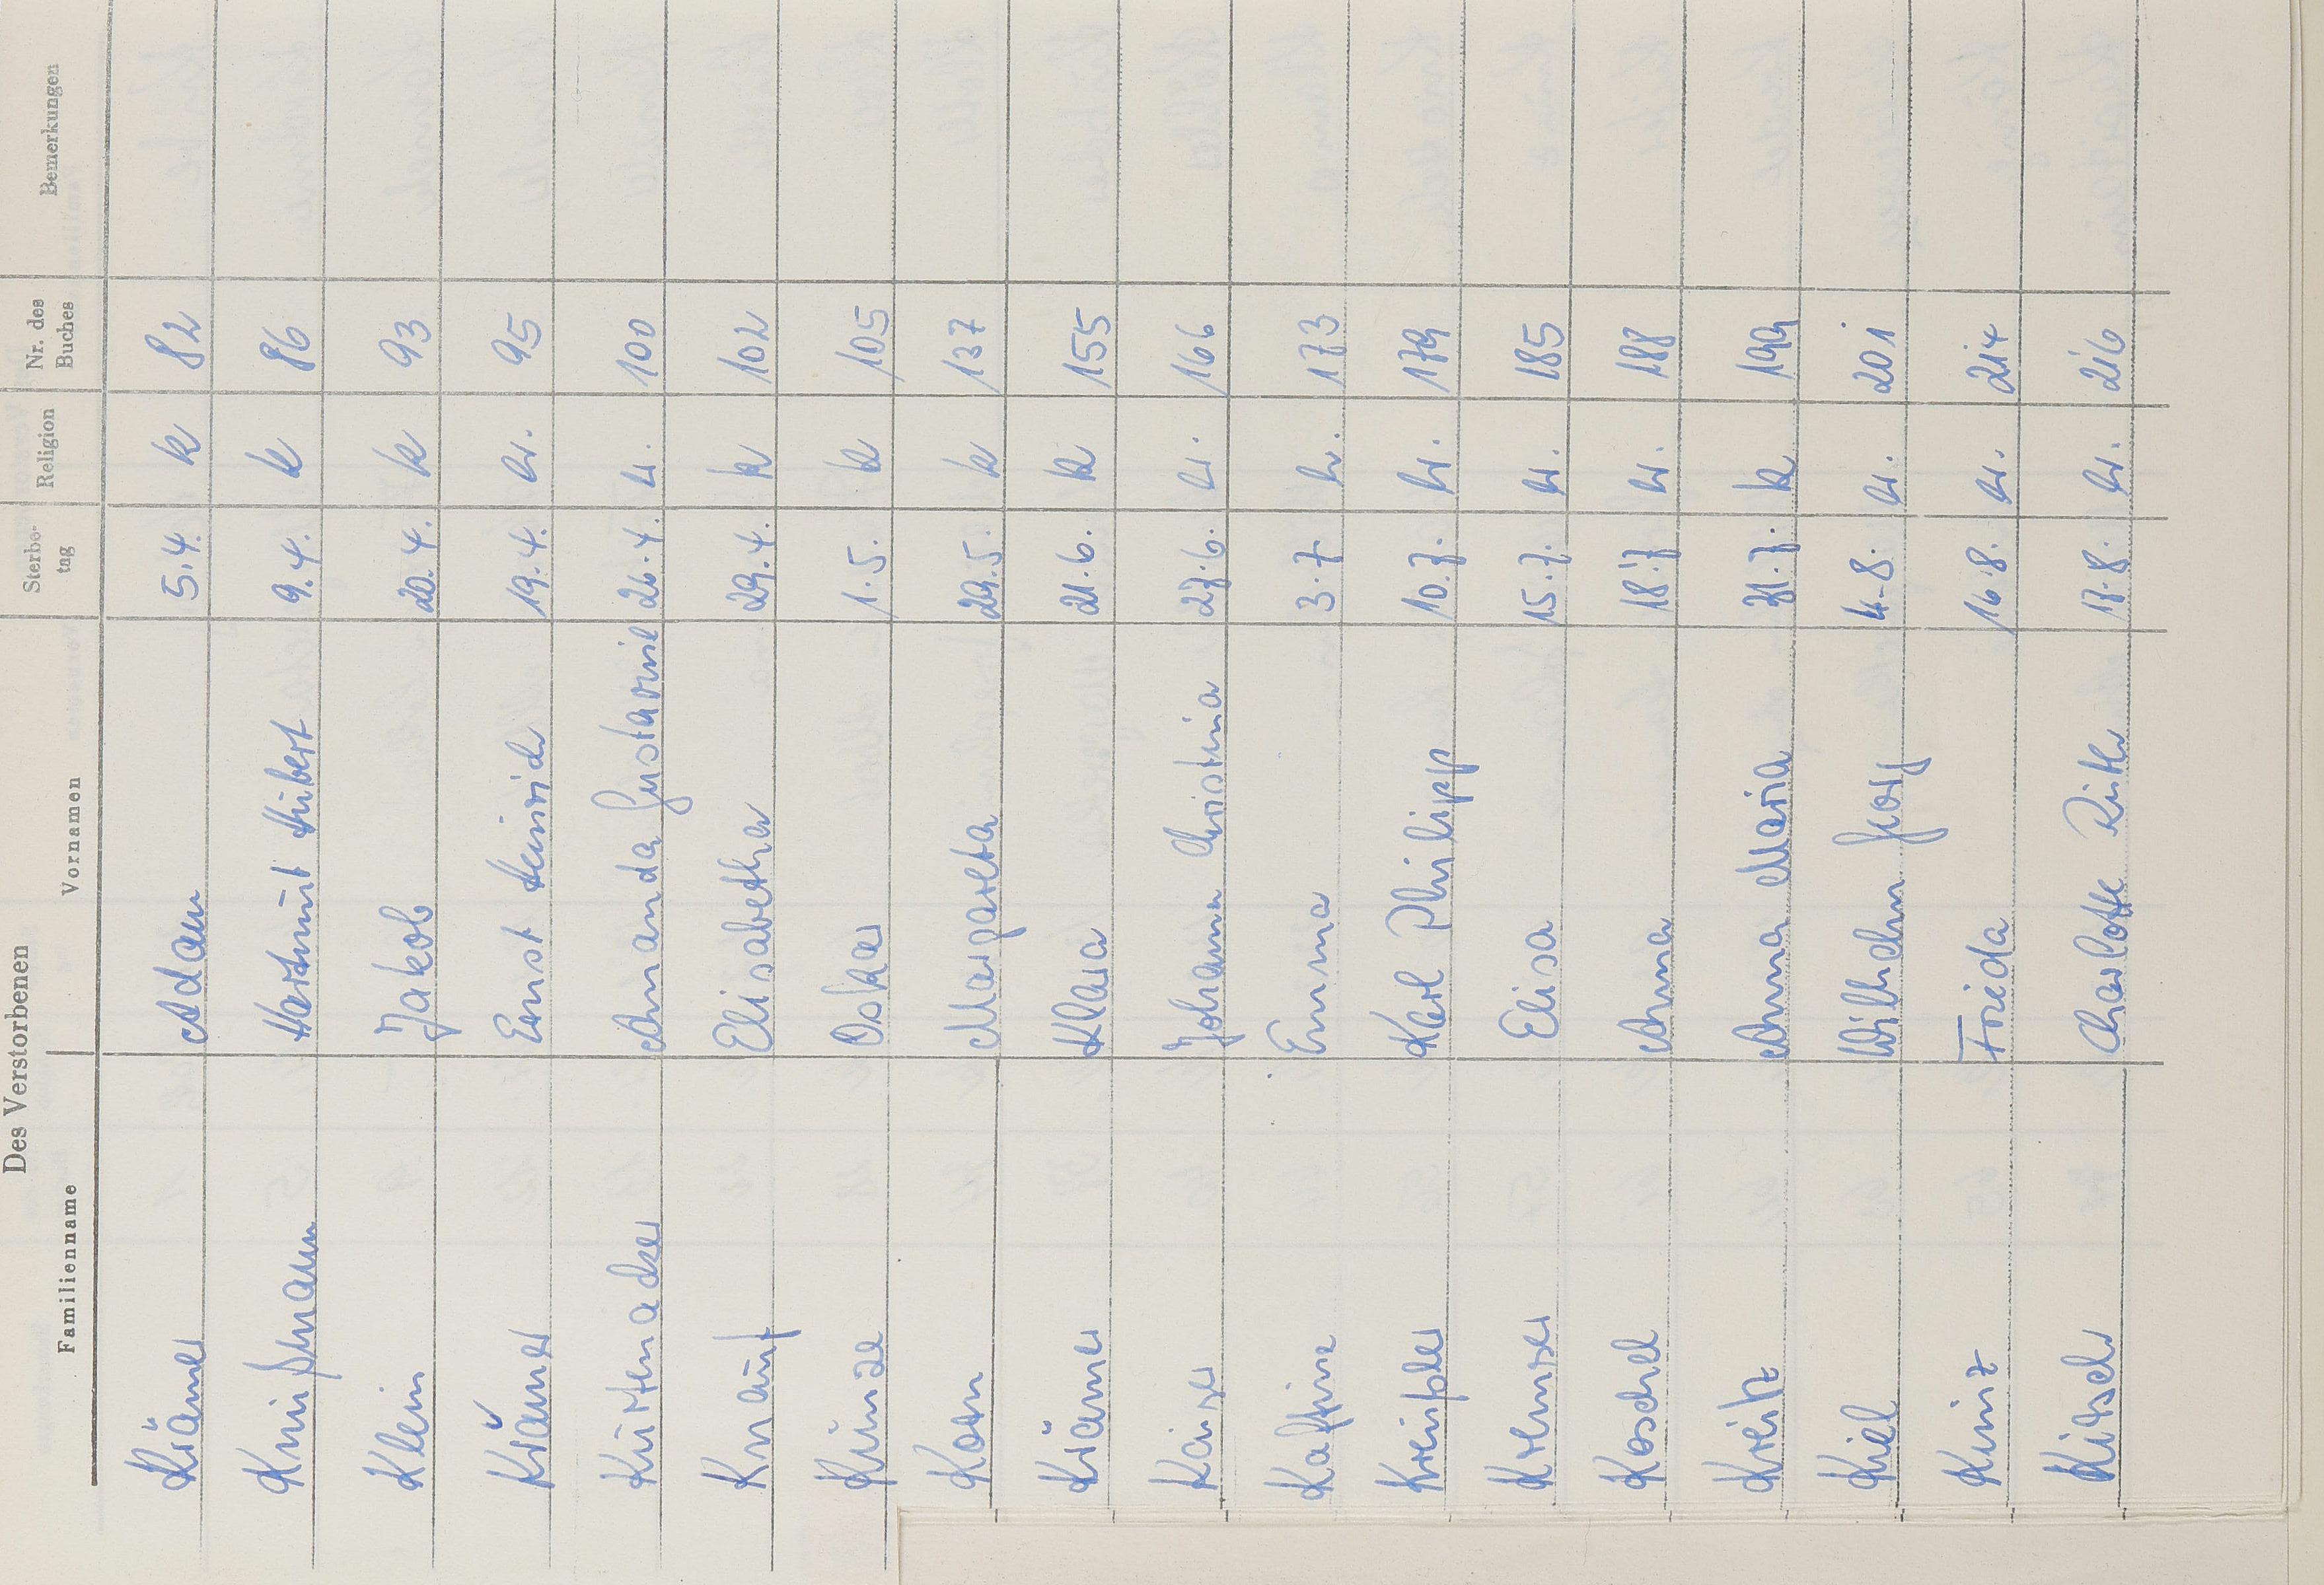 Des Verstorbenen
Familienname Vornamen Sterbe-tag Religion Nr. des Buches Bemerkungen
Krämer Adam 5.4. k 82
Hartmut Hubert 9.4. k 86
Klein Jakob 20.4. k 93
Krämer Ernst Heinrich 19.4. ev. 95
Kürtenacker Amanda Gustavine 26.4. ev. 100
Knauf Elisabetha 29.4. k 102
Kunze Oskar 1.5. k 105
Korn Margareta 29.5. k 137
Krämer Klara 21.6. k 155
Kaiser Johanna Christina 27.6. ev. 166
Emma 3.7. ev. 173
Karl Philipp 10.7. ev. 179
Kremser Elisa 15.7. ev. 185
Koschel Anna 18.7 ev. 188
Anna Maria 31.7. k. 199
Kiel Wilhelm Jorg 4.8. ev. 201
Kunz Frieda 16.8. ev. 214
Charlotte Ruth 17.8. ev. 216